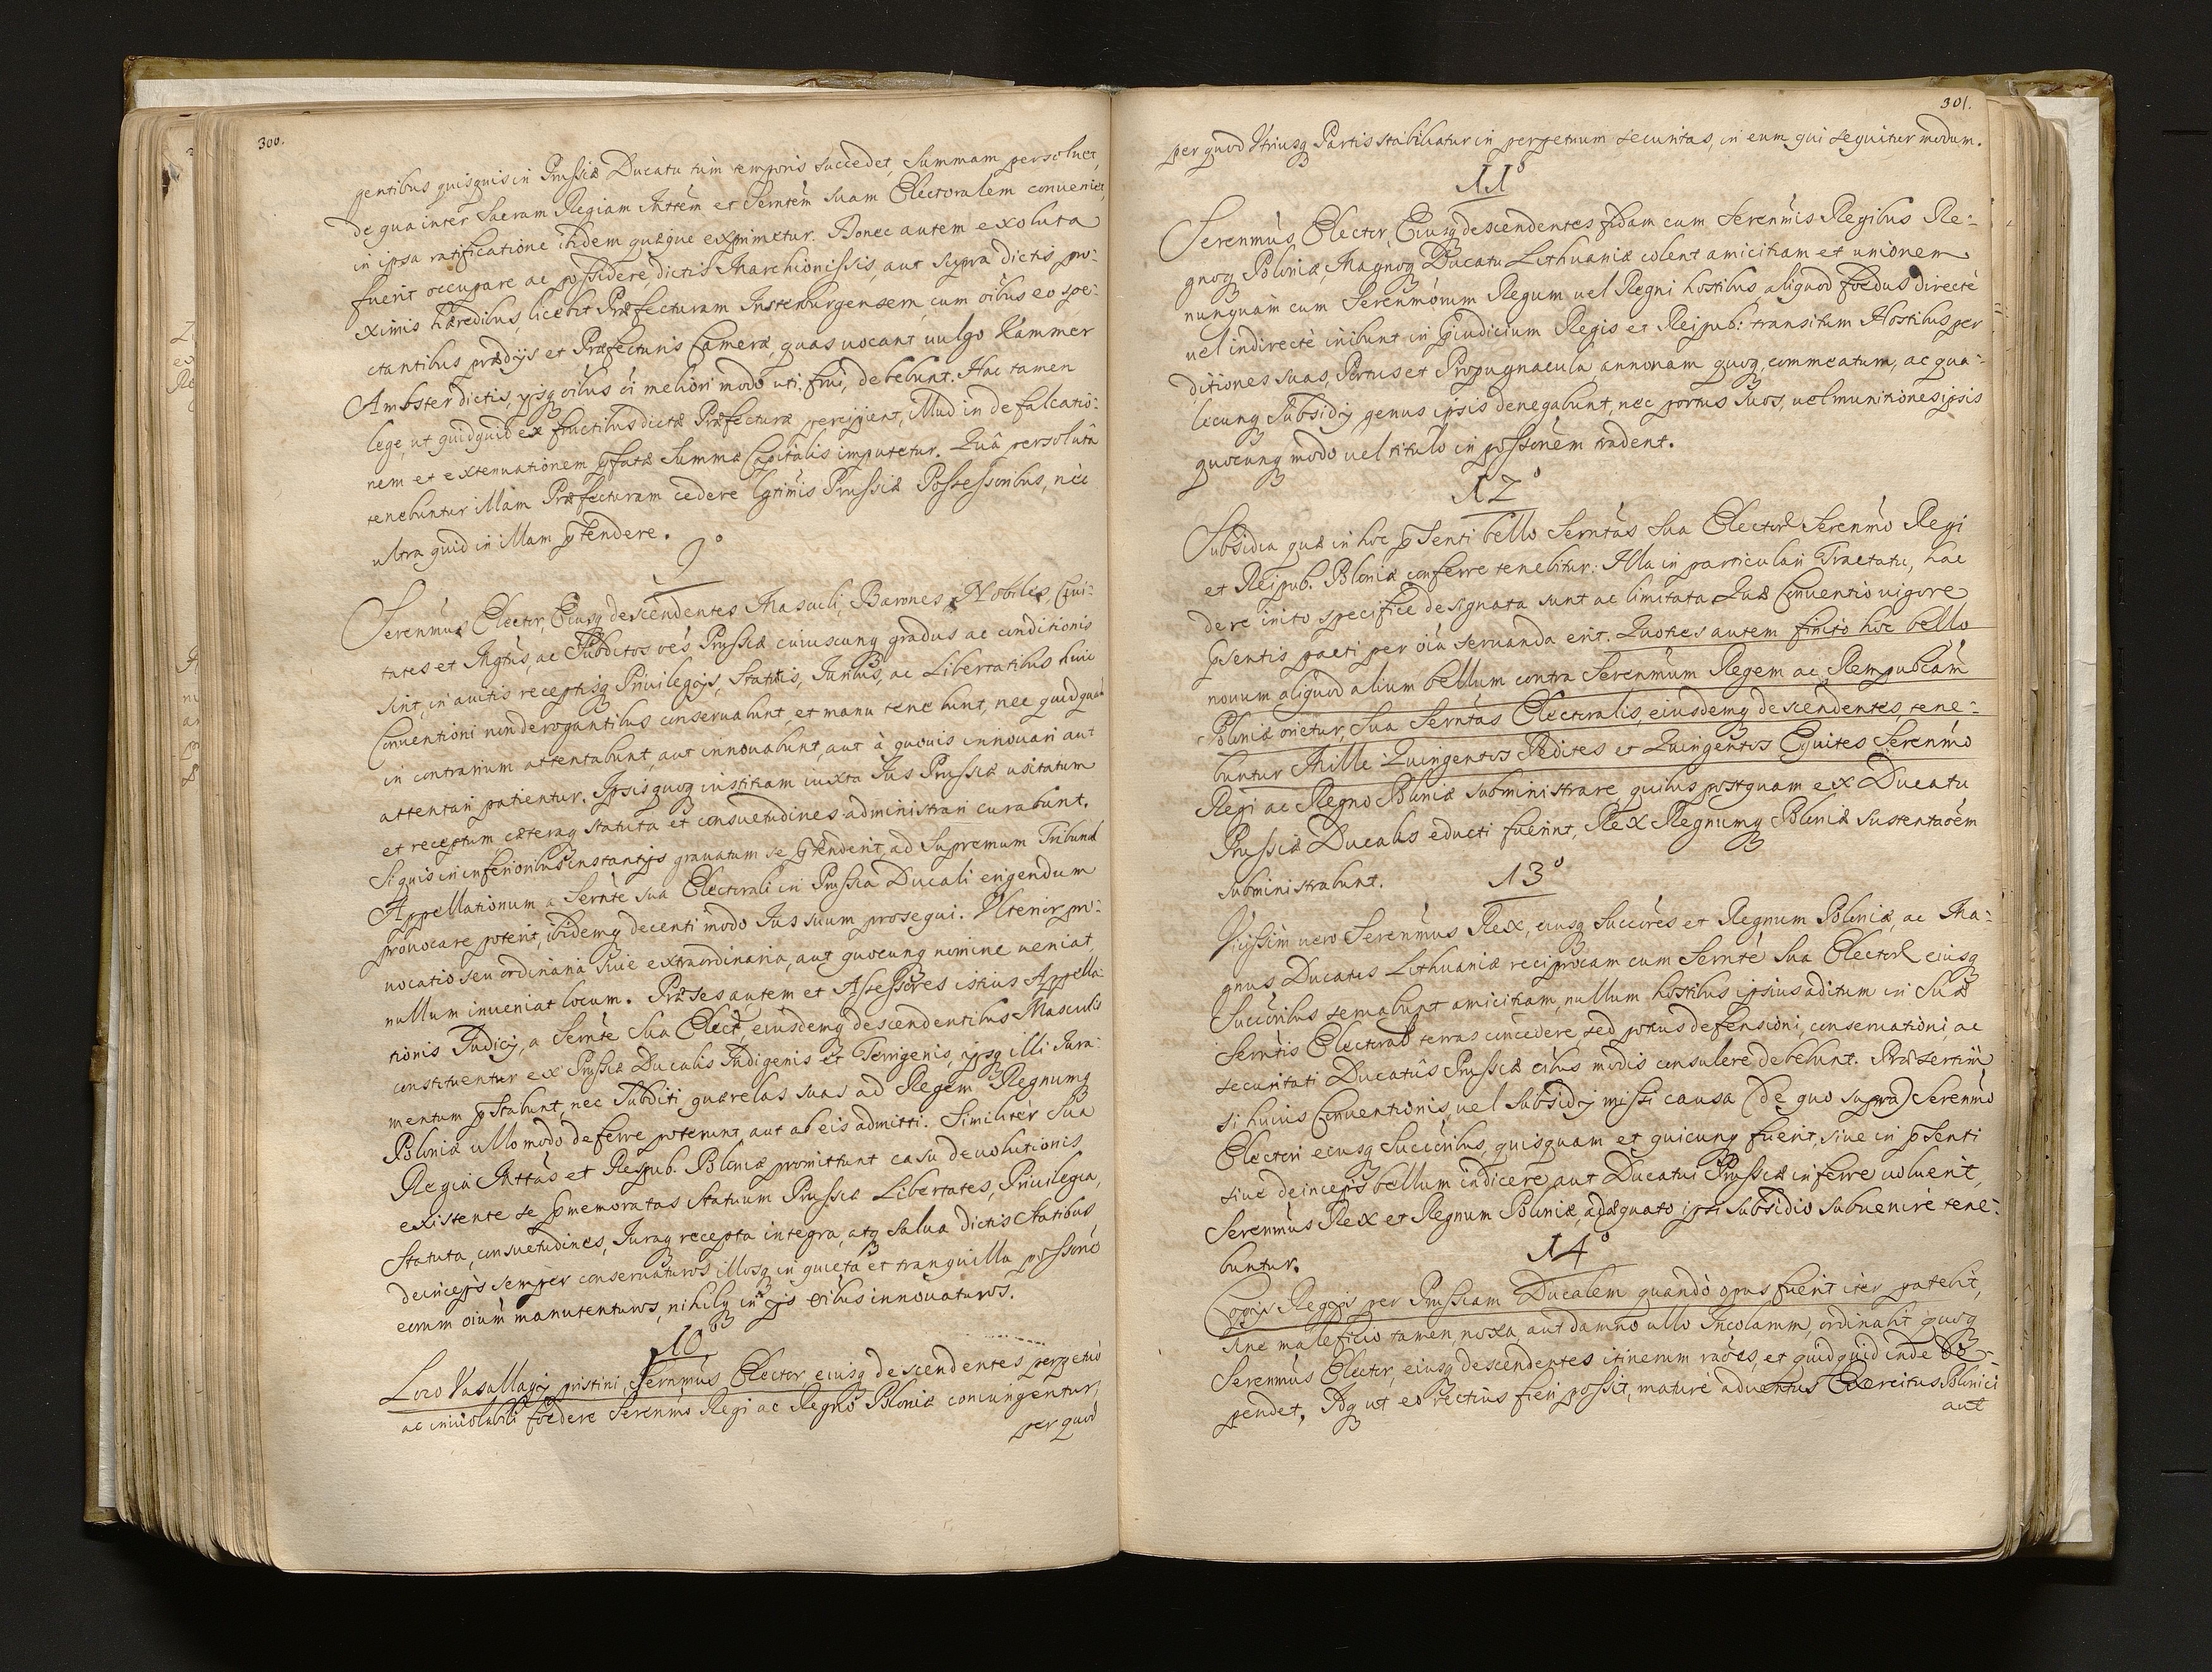 300.
gentibus quisquis in Prussiæ Ducatu tùm temporis succedet, summam persoluet,
de qua inter Sacram Regiam Mttem et Serntem suam Electoralem conueniet,
in ipsa ratificatione itidem quæque exprimetur. Donec autem exoluta
fuerit occupare ac possidere, dictis Marchionissis, aut supra dictis pro:
ximis hæredibus, licebit Præfecturam Insterburgensem, cum oîbus eo spe:
ctantibus prædijs et Præfecturis Cameræ, quas uocant uulgo Kammer
Ambster dictis, ijsq oîbus ôi meliori modo uti. frui, debebunt. Hac tamen
lege, ut quidquid ex fructibus dictæ Præfecturæ percipient, illud in defalcatio:
nem et extenuationem pfatæ Summæ Capitalis imputetur. Quâ persolutâ
tenebuntur illam Præfecturam cedere lgtimis Prussiæ Possessoribus, nec
ultra quid in illam ptendere.
9°
Serenmus Elector, Eiusq descendentes Masculi, Barones, Nobiles, Ciui:
tates et Mgtus, ac Subditos oes Prussiæ cuiuscunq gradus ac conditionis
sint, in auitis receptisq Priuilegijs, Statutis, Juribus, ac Libertatibus huic
Conuentioni non derogantibus conseruabunt, et manu tenebunt, nec quidquam
in contrarium attentabunt, aut innouabunt, aut à quouis innouari aut
attentari patientur. Ipsis quoq iustitiam iuxta Ius Prussiæ usitatum
et receptum, cæteraq statuta et consuetudines administrari curabunt.
Si quis in inferioribus instantijs grauatum se ptenderit, ad Supremum Tribunal
Appellationum a Sernte sua Electorali in Prussia Ducali erigendum
prouocare poterit, ibidemq decenti modo Ius suum prosequi. Ulterior pro:
uocatio seu ordinaria siue extraordinaria, aut quocunq nomine ueniat,
nullum inueniat locum. Præses autem et Assessores istius Appella:
tionis Judicij, a Sernte Sua Elect, eiusdemq descendentibus Masculis
constituentur ex Prussiæ Ducalis Indigenis et Terrigenis, ijsq illi Jura:
mentum pstabunt, nec Subditi quærelas suas ad Regem Regnumq
Poloniæ ullo modo deferre poterunt, aut ab eis admitti. Similiter Sua
Regia Mttas et Respub. Poloniæ promittunt casu deuolutionis
existente se pmemoratas Statuum Prussiæ Libertates, Priuilegia,
Statuta, consuetudines, Juraq recepta integra, atq salua dictis Statibus
deinceps semper conseruaturos, illosq in quieta et tranquilla possone
eorum oium manutenturos, nihilq in ijs oîbus innouaturos.
10°
Loco Vasallagij pristini, Sernmus Elector, eiusq descendentes perpetuo
ac inuiolabili foedere Serenmo Regi ac Regno Poloniæ coniungentur,
per quod
301.
per quod Utriusq Partis stabiliatur in perpetuum securitas, in eum qui sequitur modum.
11°
Serenmus Elector, Eiusq descendentes fidam cum Serenmis Regibus Re:
gnoq Poloniæ, Magnoq Ducatu Lithuaniæ colent amicitiam et unionem
nunquam cum Serenmorum Regum uel Regni hostibus, aliquod foedus directe
uel indirecte inibunt in pjudicium Regis et Reipub: transitum Hostibus per
ditiones suas, Portus et Propugnacula annonam quoq, commeatum, ac qua:
licunq Subsidij genus ipsis denegabunt, nec portus suos, uel munitiones ipsis
quocunq modo uel titulo in possonem tradent.
12°
Subsidia quæ in hoc psenti bello Serntas sua Elector Serenmo Regi
et Reipub. Poloniæ conferre tenebitur: Illa in particulari Tractatu, hac
de re inito specifice designata sunt ac limitata Quæ Conuentio uigore
psentis pacti per oîa seruanda erit. Quoties autem finito hoc bello
nouum aliquod alium bellum contra Serenmum Regem ac Rempublcam
Poloniæ orietur, Sua Serntas Electoralis eiusdemq descendentes, tene:
buntur Mille Quingentos Pedites et Quingentos Equites Serenmo
Regi ac Regno Poloniæ subministrare, quibus postquam ex Ducatu
Prussiæ Ducalis educti fuerint, Rex Regnumq Poloniæ sustentaoem
subministrabunt.
13°
Vicissim uero Serenmus Rex, eiusq Succores et Regnum Poloniæ, ac Ma:
gnus Ducatus Lithuaniæ reciprocam cum Sernte Sua Elector eiusq
Succoribus seruabunt amicitiam, nullum hostibus ipsius aditum in Suæ
Serntis Electoral terras concedere, sed potius defensioni, conseruationi, ac
securitati Ducatûs Prussiæ oîbus modis consulere debebunt. Præsertim
si huius Conuentionis, uel Subsidij missi causa (de quo supra) Serenmo
Electori eiusq Succoribus, quisquam et quicunq fuerit, siue in psenti
siue deinceps bellum indicere, aut Ducatui Prussiæ inferre uoluerit,
Serenmus Rex et Regnum Poloniæ, adæquato ipsi subsidio subuenire tene:
buntur.
14°
Copijs Regijs per Prussiam Ducalem quando opus fuerit iter patebit,
sine maleficio tamen, noxa, aut damno ullo Incolarum, ordinabit quoq
Serenmus Elector, eiusq descendentes itinerum raoes, et quidquid inde
pendet, Idq ut eo rectius fieri possit, mature aduentus Exercitus Polonici
aut